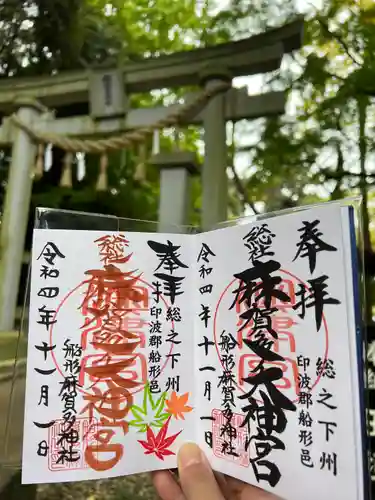 奉拝
総之下州
印波郡船形邑
総社
麻賀多大神宮
船形麻賀多神社
令和四年十一月一日
奉拝
総之下州
印波郡船形邑
総社
麻賀多大神宮
船形麻賀多神社
令和四年十一月一日